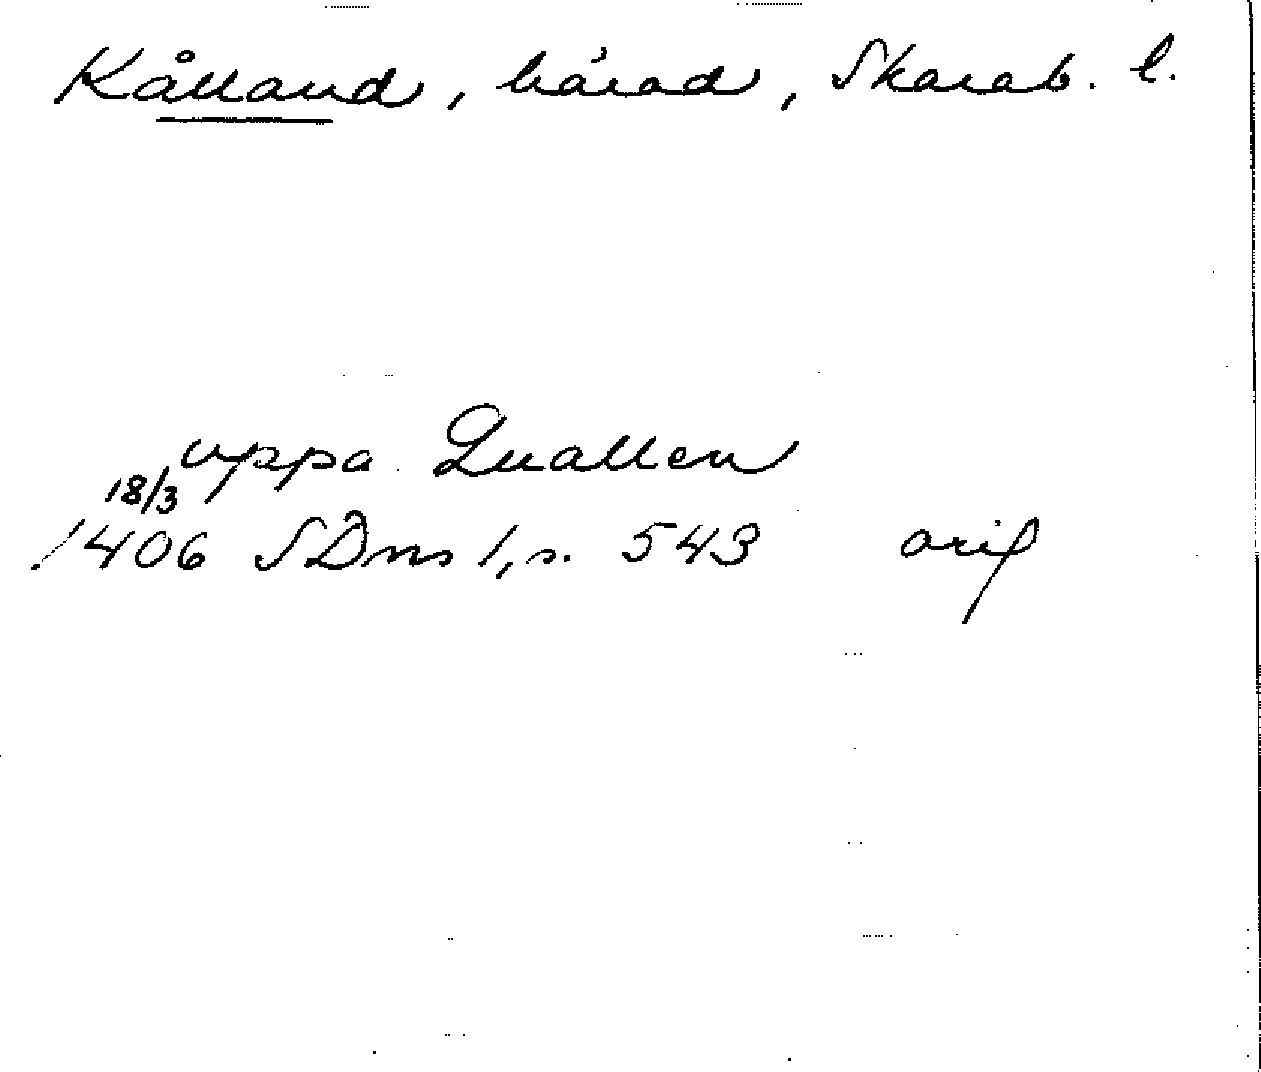 Kålland, härad, Skarab. l.
uppa Quallen
18/3
1406 SDns 1, s. 543 orig